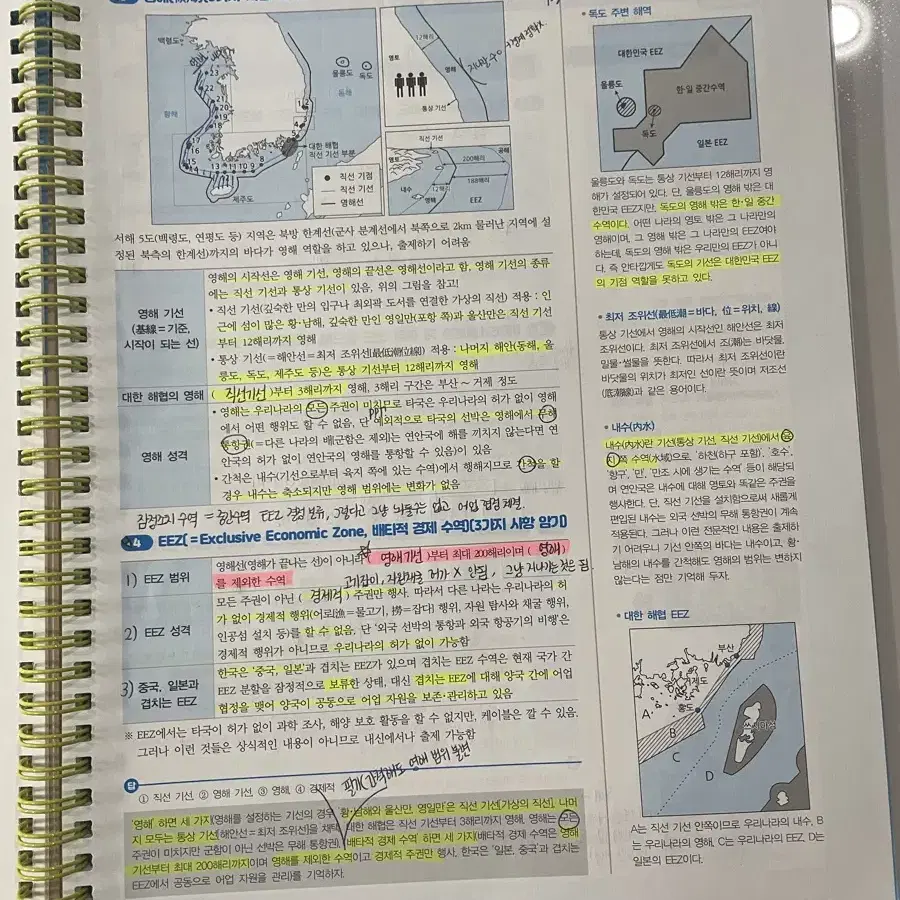 백령도
황해
울릉도
독도
동해
대한 해협
직선 기선 부분
제주도
직선 기점
직선 기선
영해선
12해리
영토
영해
통상 기선
직선 기선
영토
200해리
공해
12해리
188해리
내수
영해
EEZ
서해 5도(백령도, 연평도 등) 지역은 북방 한계선(군사 분계선에서 북쪽으로 2km 물러난 지역에 설
정된 북측의 한계선)까지의 바다가 영해 역할을 하고 있으나, 출제하기 어려움
영해 기선
(基線=기준,
시작이 되는 선)
영해의 시작선은 영해 기선, 영해의 끝선은 영해선이라고 함, 영해 기선의 종류
에는 직선 기선과 통상 기선이 있음, 위의 그림을 참고!
• 직선 기선(깊숙한 만의 입구나 최외곽 도서를 연결한 가상의 직선) 적용 : 인
근에 섬이 많은 황·남해, 깊숙한 만인 영일만(포항 쪽)과 울산만은 직선 기선
부터 12해리까지 영해
• 통상 기선(=해안선=최저 조위선(最低潮位線) 적용 : 나머지 해안(동해, 울
릉도, 독도, 제주도 등)은 통상 기선부터 12해리까지 영해
대한 해협의 영해
( 직선기선 )부터 3해리까지 영해, 3해리 구간은 부산 ~ 거제 정도
영해 성격
• 영해는 우리나라의 모든 주권이 미치므로 타국은 우리나라의 허가 없이 영해
에서 어떤 행위도 할 수 없음, 단 예외적으로 타국의 선박은 영해에서 무해
통항권(=다른 나라의 배(군함은 제외)는 연안국에 해를 끼치지 않는다면 연
안국의 허가 없이 연안국의 영해를 통항할 수 있음)이 있음
• 간척은 내수(기선으로부터 육지 쪽에 있는 수역)에서 행해지므로 간척을 할
경우 내수는 축소되지만 영해 범위에는 변화가 없음
잠정조치 수역 = 중간수역 EEZ 경정 보류, 그렇다고 그냥 놔둘수는 없고 어업 협정 체결.
4 EEZ(=Exclusive Economic Zone, 배타적 경제 수역)(3가지 사항 암기)
1) EEZ 범위
영해선(영해가 끝나는 선)이 아니라 ( 영해기선 )부터 최대 200해리이며 ( 영해 )
를 제외한 수역
고기잡이, 자원채굴 허가 X 안됨, 그냥 지나가는것은 됨
2) EEZ 성격
모든 주권이 아닌 ( 경제적 ) 주권만 행사. 따라서 다른 나라는 우리나라의 허
가 없이 경제적 행위(어로[漁=물고기, 撈=잡다] 행위, 자원 탐사와 채굴 행위,
인공섬 설치 등)를 할 수 없음, 단 '외국 선박의 통항과 외국 항공기의 비행'은
경제적 행위가 아니므로 우리나라의 허가 없이 가능함
3) 중국, 일본과
겹치는 EEZ
한국은 '중국, 일본'과 겹치는 EEZ가 있으며 겹치는 EEZ 수역은 현재 국가 간
EEZ 분할을 잠정적으로 보류한 상태, 대신 겹치는 EEZ에 대해 양국 간에 어업
협정을 맺어 양국이 공동으로 어업 자원을 보존·관리하고 있음
※ EEZ에서는 타국이 허가 없이 과학 조사, 해양 보호 활동을 할 수 없지만, 케이블은 깔 수 있음.
그러나 이런 것들은 상식적인 내용이 아니므로 내신에서나 출제 가능함
답
① 직선 기선, ② 영해 기선, ③ 영해, ④ 경제적
영해 범위 불변
'영해' 하면 세 가지(영해를 설정하는 기선의 경우 '황·남해와 울산만, 영일만'은 직선 기선[가상의 직선], 나머
지 모두는 통상 기선[해안선=최저 조위선]을 채택, 대한 해협은 직선 기선부터 3해리까지 영해, 영해는 모든
주권이 미치지만 군함이 아닌 선박은 무해 통항권), '배타적 경제 수역' 하면 세 가지(배타적 경제 수역은 영해
기선부터 최대 200해리까지이며 영해를 제외한 수역이고 경제적 주권만 행사, 한국은 '일본, 중국'과 겹치는
EEZ에서 공동으로 어업 자원을 관리)를 기억하자.
• 독도 주변 해역
대한민국 EEZ
울릉도
한·일 중간수역
독도
일본 EEZ
울릉도와 독도는 통상 기선부터 12해리까지 영
해가 설정되어 있다. 단, 울릉도의 영해 밖은 대
한민국 EEZ지만, 독도의 영해 밖은 한·일 중간
수역이다. 어떤 나라의 영토 밖은 그 나라만의
영해이며, 그 영해 밖은 그 나라만의 EEZ여야
하는데, 독도의 영해 밖은 우리만의 EEZ가 아니
다. 즉 안타깝게도 독도의 기선은 대한민국 EEZ
의 기점 역할을 못하고 있다.
• 최저 조위선(最低潮=바다, 位=위치, 線)
통상 기선에서 영해의 시작선인 해안선은 최저
조위선이다. 최저 조위선에서 조(潮)는 바닷물,
밀물·썰물을 뜻한다. 따라서 최저 조위선이란
바닷물의 위치가 최저인 선이란 뜻이며 저조선
(底潮線)과 같은 용어이다.
• 내수(內水)
내수(內水)란 기선(통상 기선, 직선 기선)에서 육
지 쪽 수역(水域)으로, '하천(하구 포함)', '호수',
'항구', '만', '만조 시에 생기는 수역' 등이 해당되
며 연안국은 내수에 대해 영토와 똑같은 주권을
행사한다. 단, 직선 기선을 설치함으로써 새롭게
편입된 내수는 외국 선박의 무해 통항권이 계속
적용된다. 그러나 이런 전문적인 내용은 출제하
기 어려우니 기선 안쪽의 바다는 내수이고, 황·
남해의 내수를 간척해도 영해의 범위는 변하지
않는다는 점만 기억해 두자.
• 대한 해협 EEZ
부산
거제도
홍도
쓰시마섬
A
B
C
D
A는 직선 기선 안쪽이므로 우리나라의 내수, B
는 우리나라의 영해, C는 우리나라의 EEZ, D는
일본의 EEZ이다.